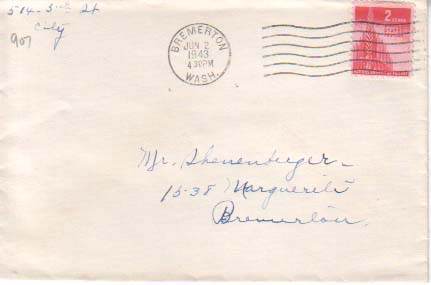 514-3rd St
City
907
BREMERTON
JUN 2
1943
4 30PM
WASH.
2 CENTS
Mr. Shenenberger
1538 Marguerite
Bremerton.